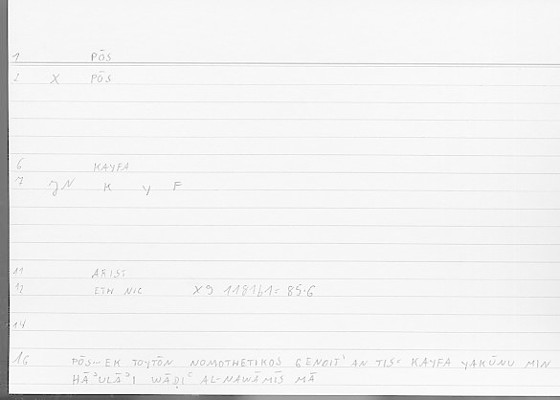 1 PŌS
2 X PŌS
6 KAYFA
7 JN K Y F
11 ARIST
12 ETH NIC X9 1181b1= 85.6
14
16 PŌS... EK TOYTŌN NOMOTHETIKOS GENOIT' AN TIS: KAYFA YAKŪNU MIN
HĀʾULĀʾI WĀḌIʿ AL-NAWĀMĪS MĀ